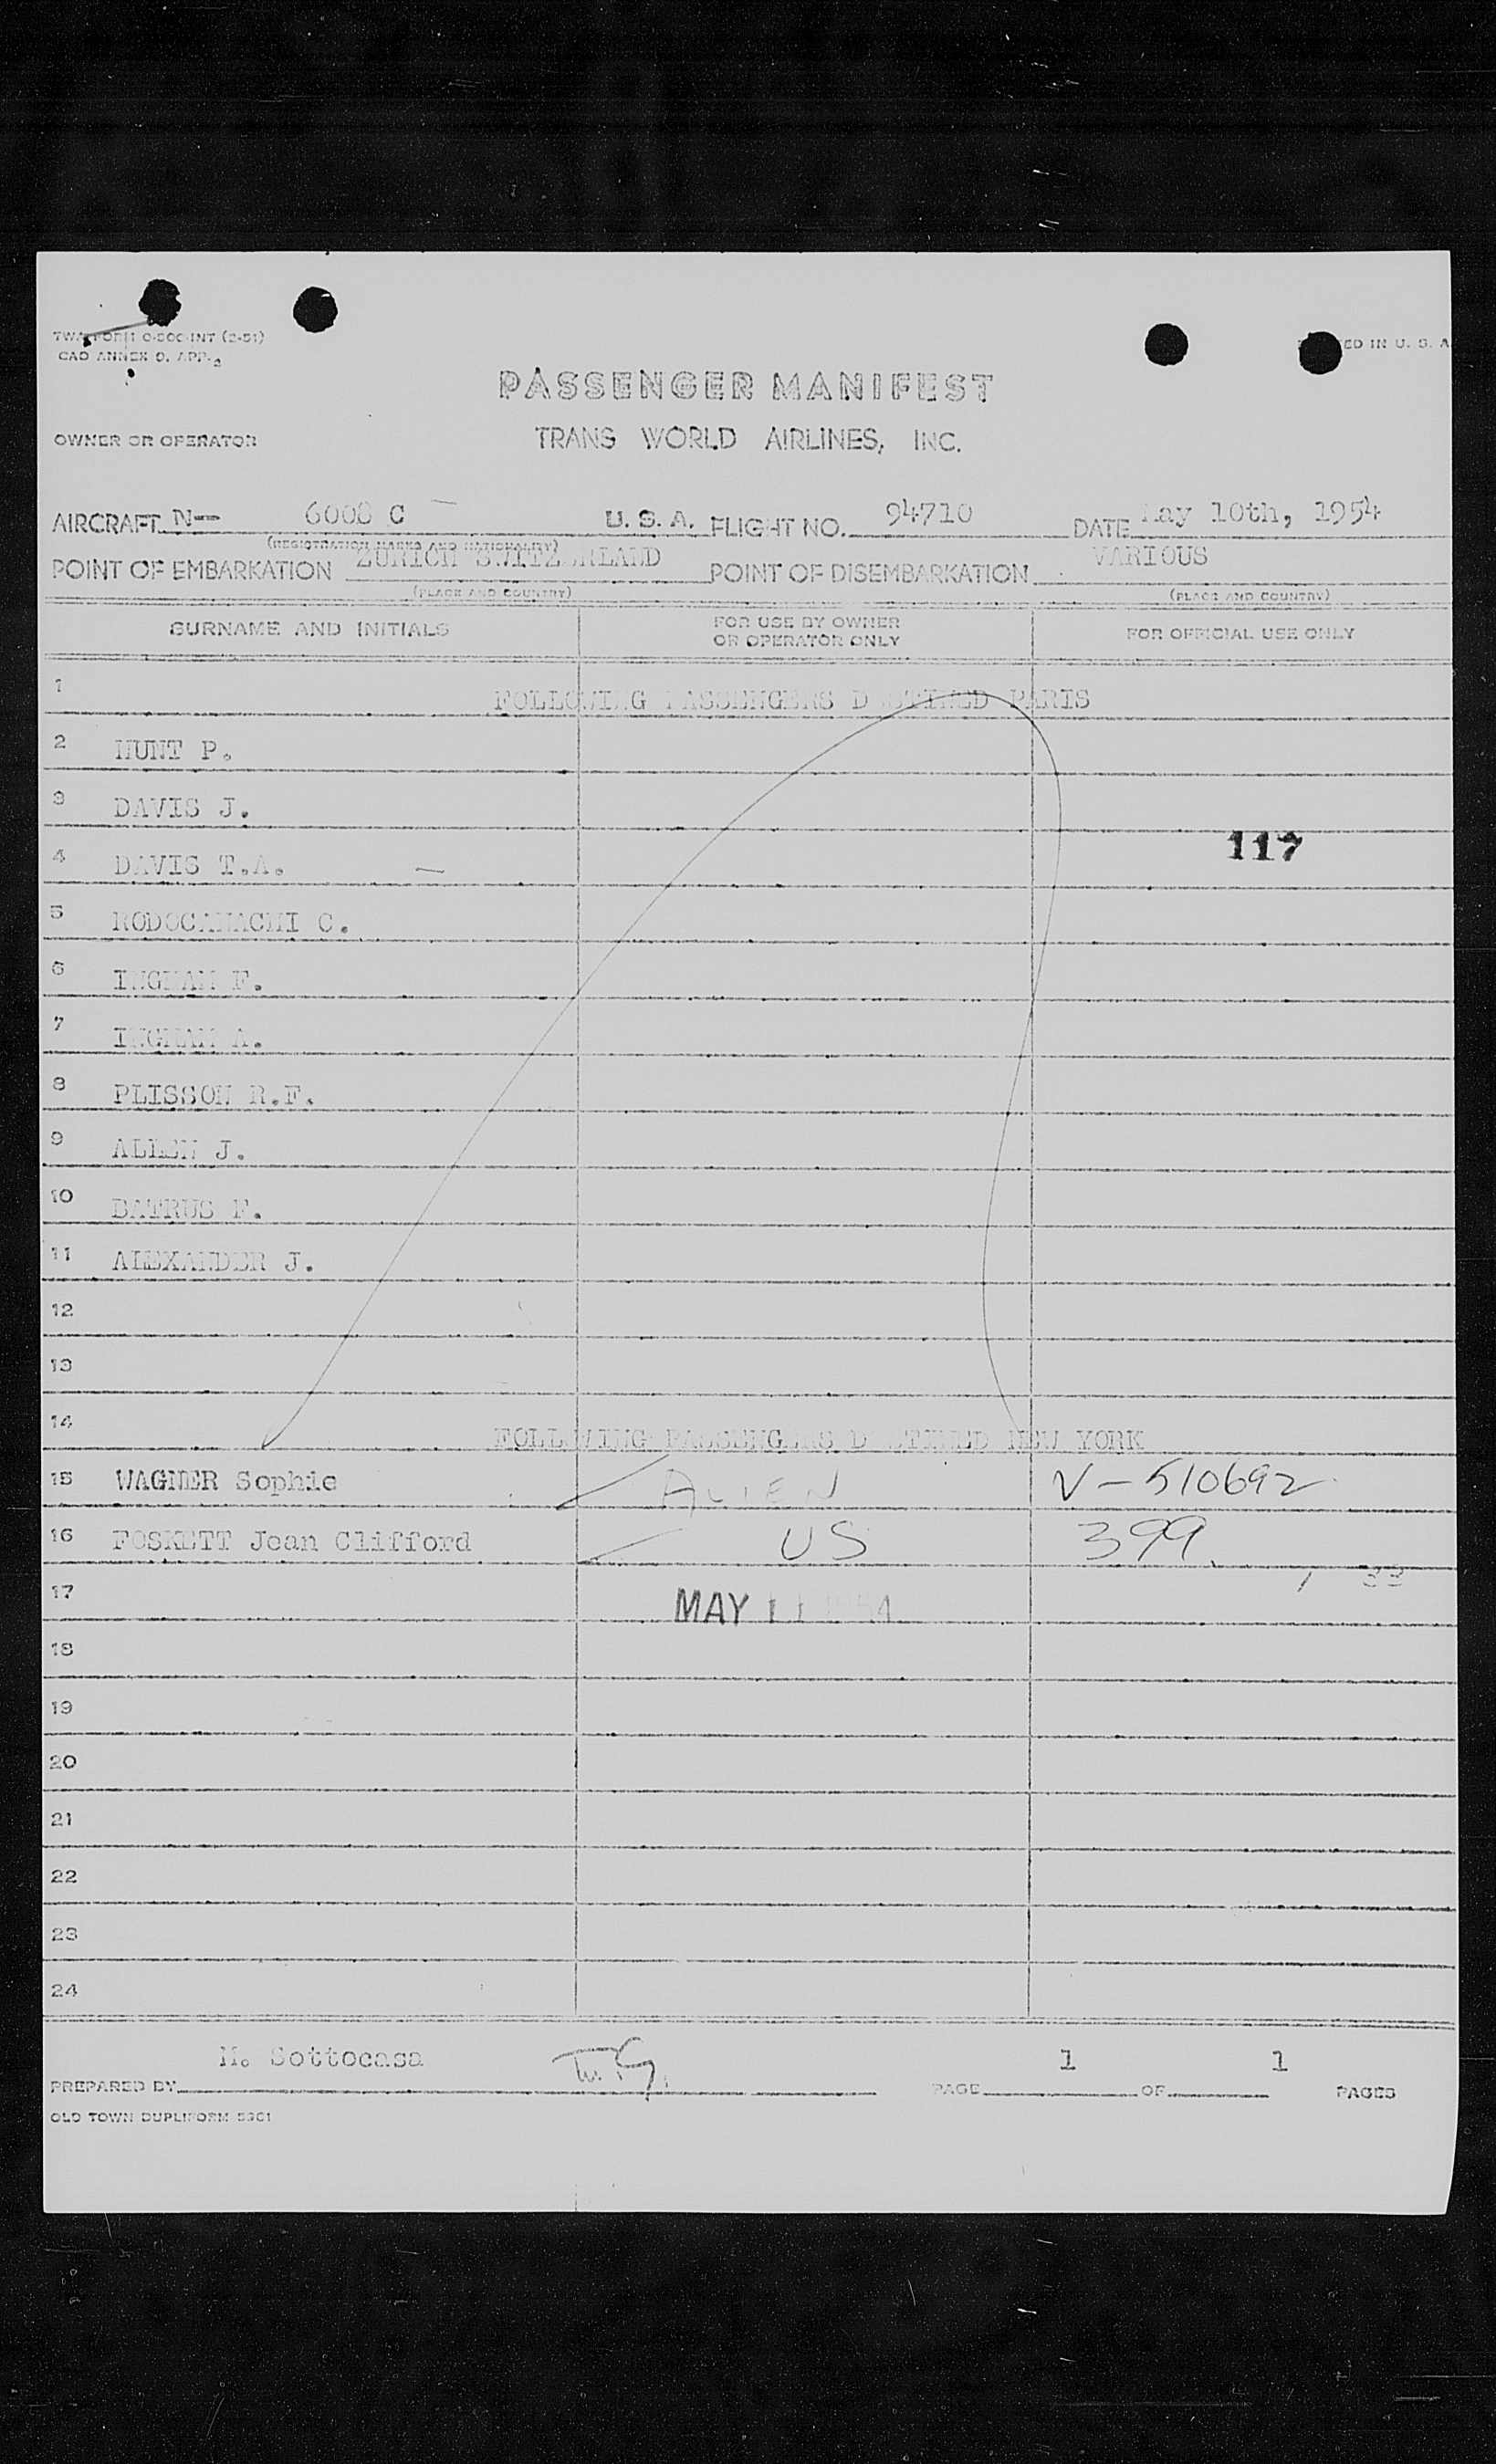 TWA FORM O-500-INT (2-51)
CAO ANNEX 9, APP. 2
IN U. S. A
PASSENGER MANIFEST
OWNER OR OPERATOR
TRANS WORLD AIRLINES, INC.
AIRCRAFT N- 6008 C U. S. A. FLIGHT NO. 94710 DATE May 10th, 1954
(REGISTRATION MARKS AND NATIONALITY)
POINT OF EMBARKATION ZURICH SWITZERLAND POINT OF DISEMBARKATION VARIOUS
(PLACE AND COUNTRY) (PLACE AND COUNTRY)
SURNAME AND INITIALS FOR USE BY OWNER OR OPERATOR ONLY FOR OFFICIAL USE ONLY
1 FOLLOWING PASSENGERS DESTINED PARIS
2 HUNT P.
3 DAVIS J.
117
4 DAVIS T.A.
5 RODOCANACHI C.
6 INGHAM F.
7 INGHAM A.
8 PLISSON R.F.
9 ALLEN J.
10 BATRUS F.
11 ALEXANDER J.
12
13
14 FOLLOWING PASSENGERS DESTINED NEW YORK
15 WAGNER Sophie ALIEN V-510692
16 FOSKETT Jean Clifford US 399
17 MAY 11 1954
18
19
20
21
22
23
24
PREPARED BY M. Sottocasa PAGE 1 OF 1 PAGES
OLD TOWN DUPLIFORM 5901